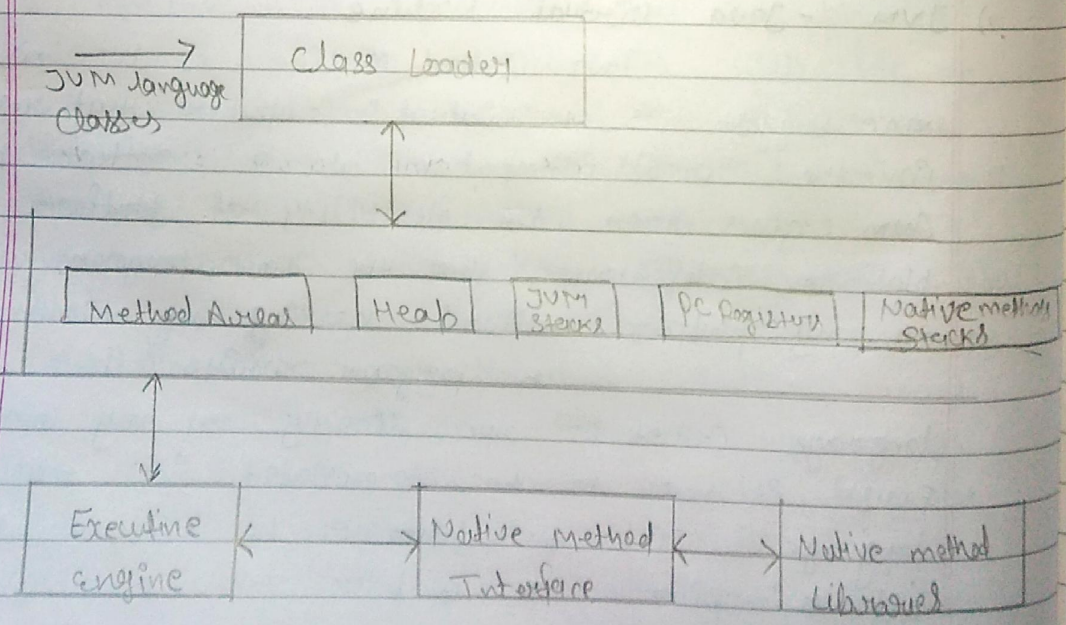 Class Loader
JVM language
Classes
Method Areas
Heap
JVM
Stacks
PC Registers
Native method
Stacks
Executine
engine
Native Method
Interface
Native method
Libraries